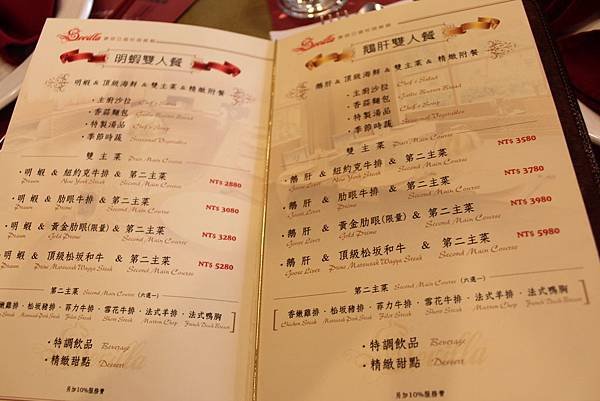 Sevilla
明蝦雙人餐
明蝦 & 頂級海鮮 & 雙主菜 & 精緻附餐
・主廚沙拉 Chef's Salad
・香蒜麵包 Garlic Butter Bread
・特製湯品 Chef's Soup
・季節時蔬 Seasonal Vegetables
雙主菜 Duet Main Course
・明蝦 & 紐約克牛排 & 第二主菜 NT$ 2880
Prawn New York Steak Second Main Course
・明蝦 & 肋眼牛排 & 第二主菜 NT$ 3080
Prawn Prime Second Main Course
・明蝦 & 黃金肋眼(限量) & 第二主菜 NT$ 3280
Prawn Gold Prime Second Main Course
明蝦 & 頂級松坂和牛 & 第二主菜 NT$ 5280
Prawn Prime Matsusak Wagyu Steak Second Main Course
第二主菜 Second Main Course (六選一)
香嫩雞排・松坂豬排・菲力牛排・雪花牛排・法式羊排・法式鴨胸
Steak Matsusak Pork Steak Filet Steak Short Steak Mutton Chop French Duck Breast
・特調飲品 Beverage
・精緻甜點 Dessert
另加10%服務費
Sevilla
鵝肝雙人餐
鵝肝 & 頂級海鮮 & 雙主菜 & 精緻附餐
・主廚沙拉 Chef's Salad
・香蒜麵包 Garlic Butter Bread
・特製湯品 Chef's Soup
・季節時蔬 Seasonal Vegetables
雙主菜 Duet Main Course
・鵝肝 & 紐約克牛排 & 第二主菜 NT$ 3580
Goose Liver New York Steak Second Main Course
・鵝肝 & 肋眼牛排 & 第二主菜 NT$ 3780
Goose Liver Prime Second Main Course
・鵝肝 & 黃金肋眼(限量) & 第二主菜 NT$ 3980
Goose Liver Gold Prime Second Main Course
・鵝肝 & 頂級松坂和牛 & 第二主菜 NT$ 5980
Goose Liver Prime Matsusak Wagyu Steak Second Main Course
第二主菜 Second Main Course (六選一)
香嫩雞排・松坂豬排・菲力牛排・雪花牛排・法式羊排・法式鴨胸
Chicken Steak Matsusak Pork Steak Filet Steak Short Steak Mutton Chop French Duck Breast
・特調飲品 Beverage
・精緻甜點 Dessert
另加10%服務費